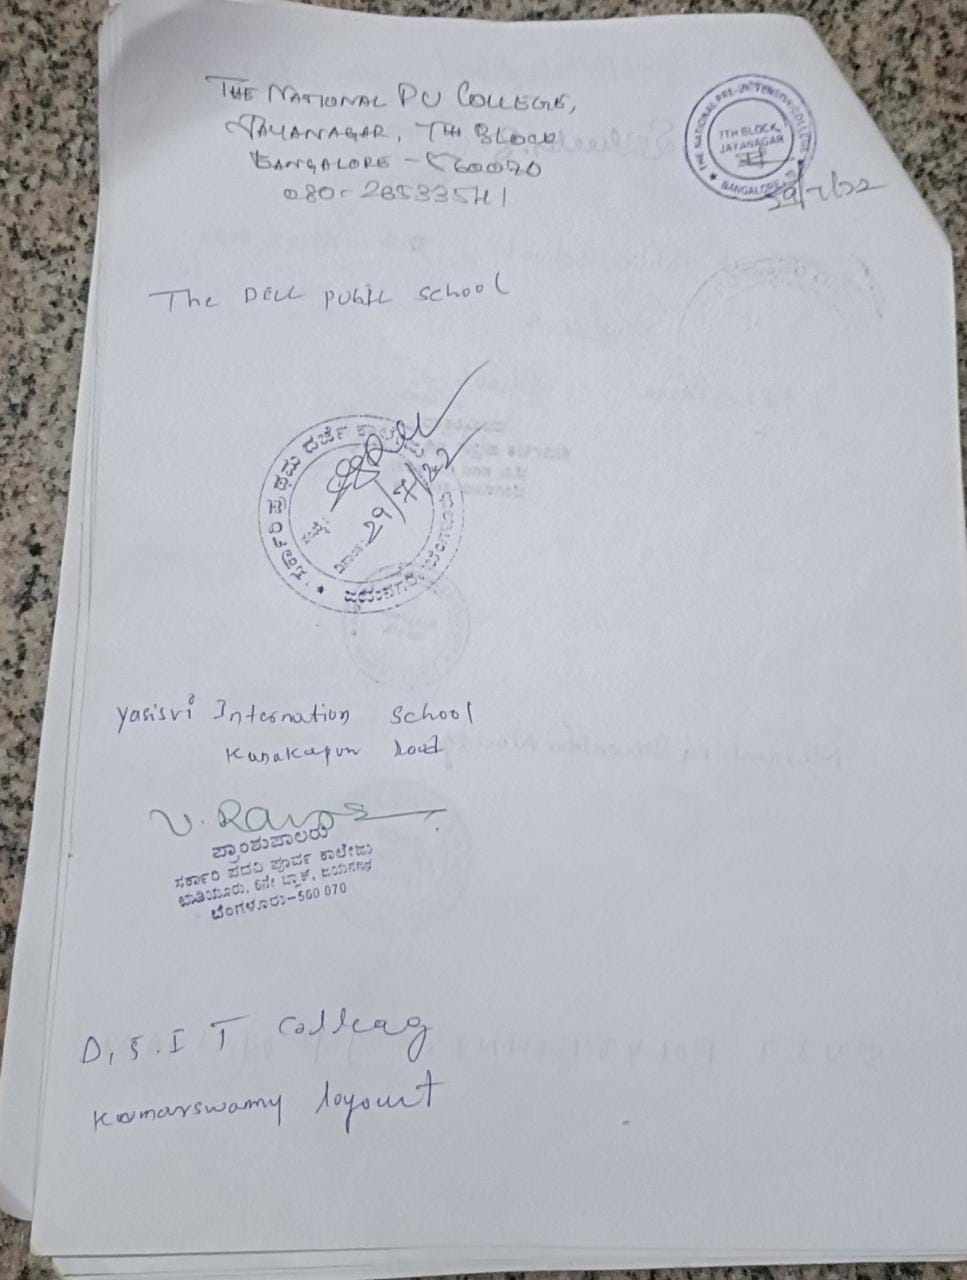 THE NATIONAL PU COLLEGE,
JAYANAGAR, 7TH BLOCK
BANGALORE - 560070
080-26533541
★ THE NATIONAL PRE-UNIVERSITY COLLEGE ★ BANGALORE
7TH BLOCK
JAYANAGAR
29/7/22
The DELL public school
ಸರ್ಕಾರಿ ಪ್ರಥಮ ದರ್ಜೆ ಕಾಲೇಜು
ಜಯನಗರ, ಬೆಂಗಳೂರು
ಸಂಖ್ಯೆ:
ದಿನಾಂಕ: 29/7/22
Yasisvi Internation School
Kanakapur Road
ಪ್ರಾಂಶುಪಾಲರು
ಸರ್ಕಾರಿ ಪದವಿ ಪೂರ್ವ ಕಾಲೇಜು
ಬೈರಸಂದ್ರ, ಬ್ಲಾಕ್, ಜಯನಗರ
ಬೆಂಗಳೂರು-560 070
D.S.I T Colleag
Komarswamy loyout